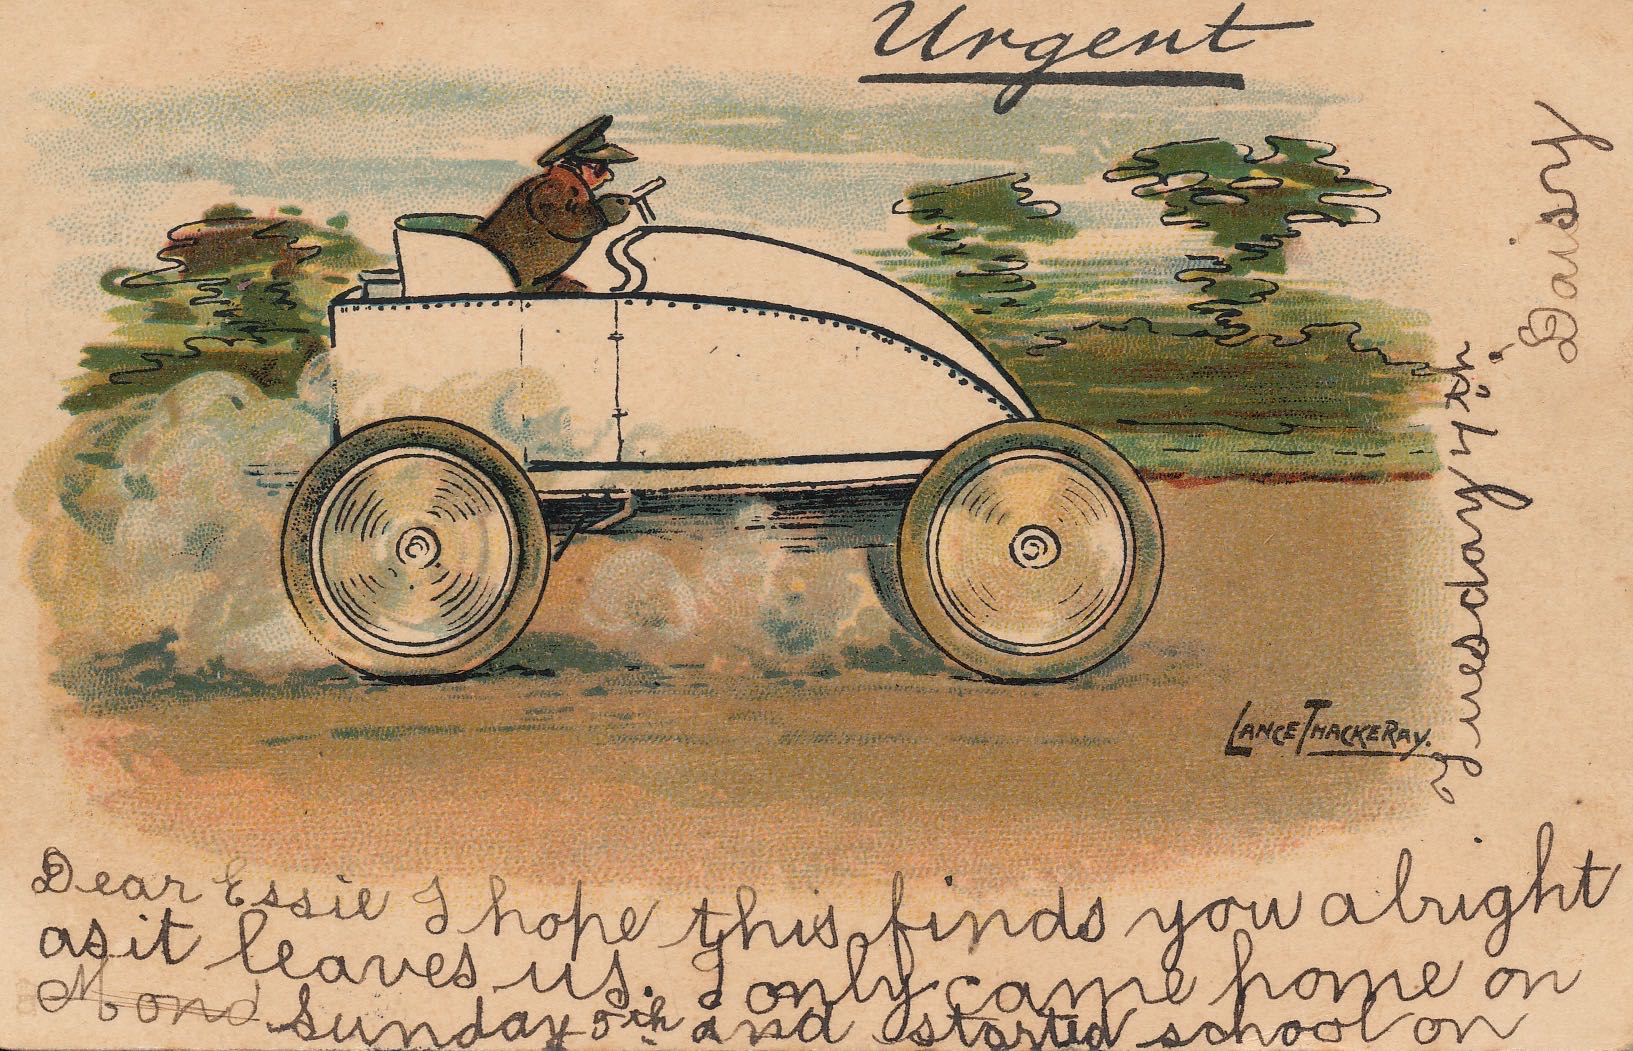 Urgent
Lance Thackeray.
Dear Essie I hope this finds you alright
as it leaves us. I only came home on
Mond Sunday 5th and started school on
Tuesday 7th.
Daisy